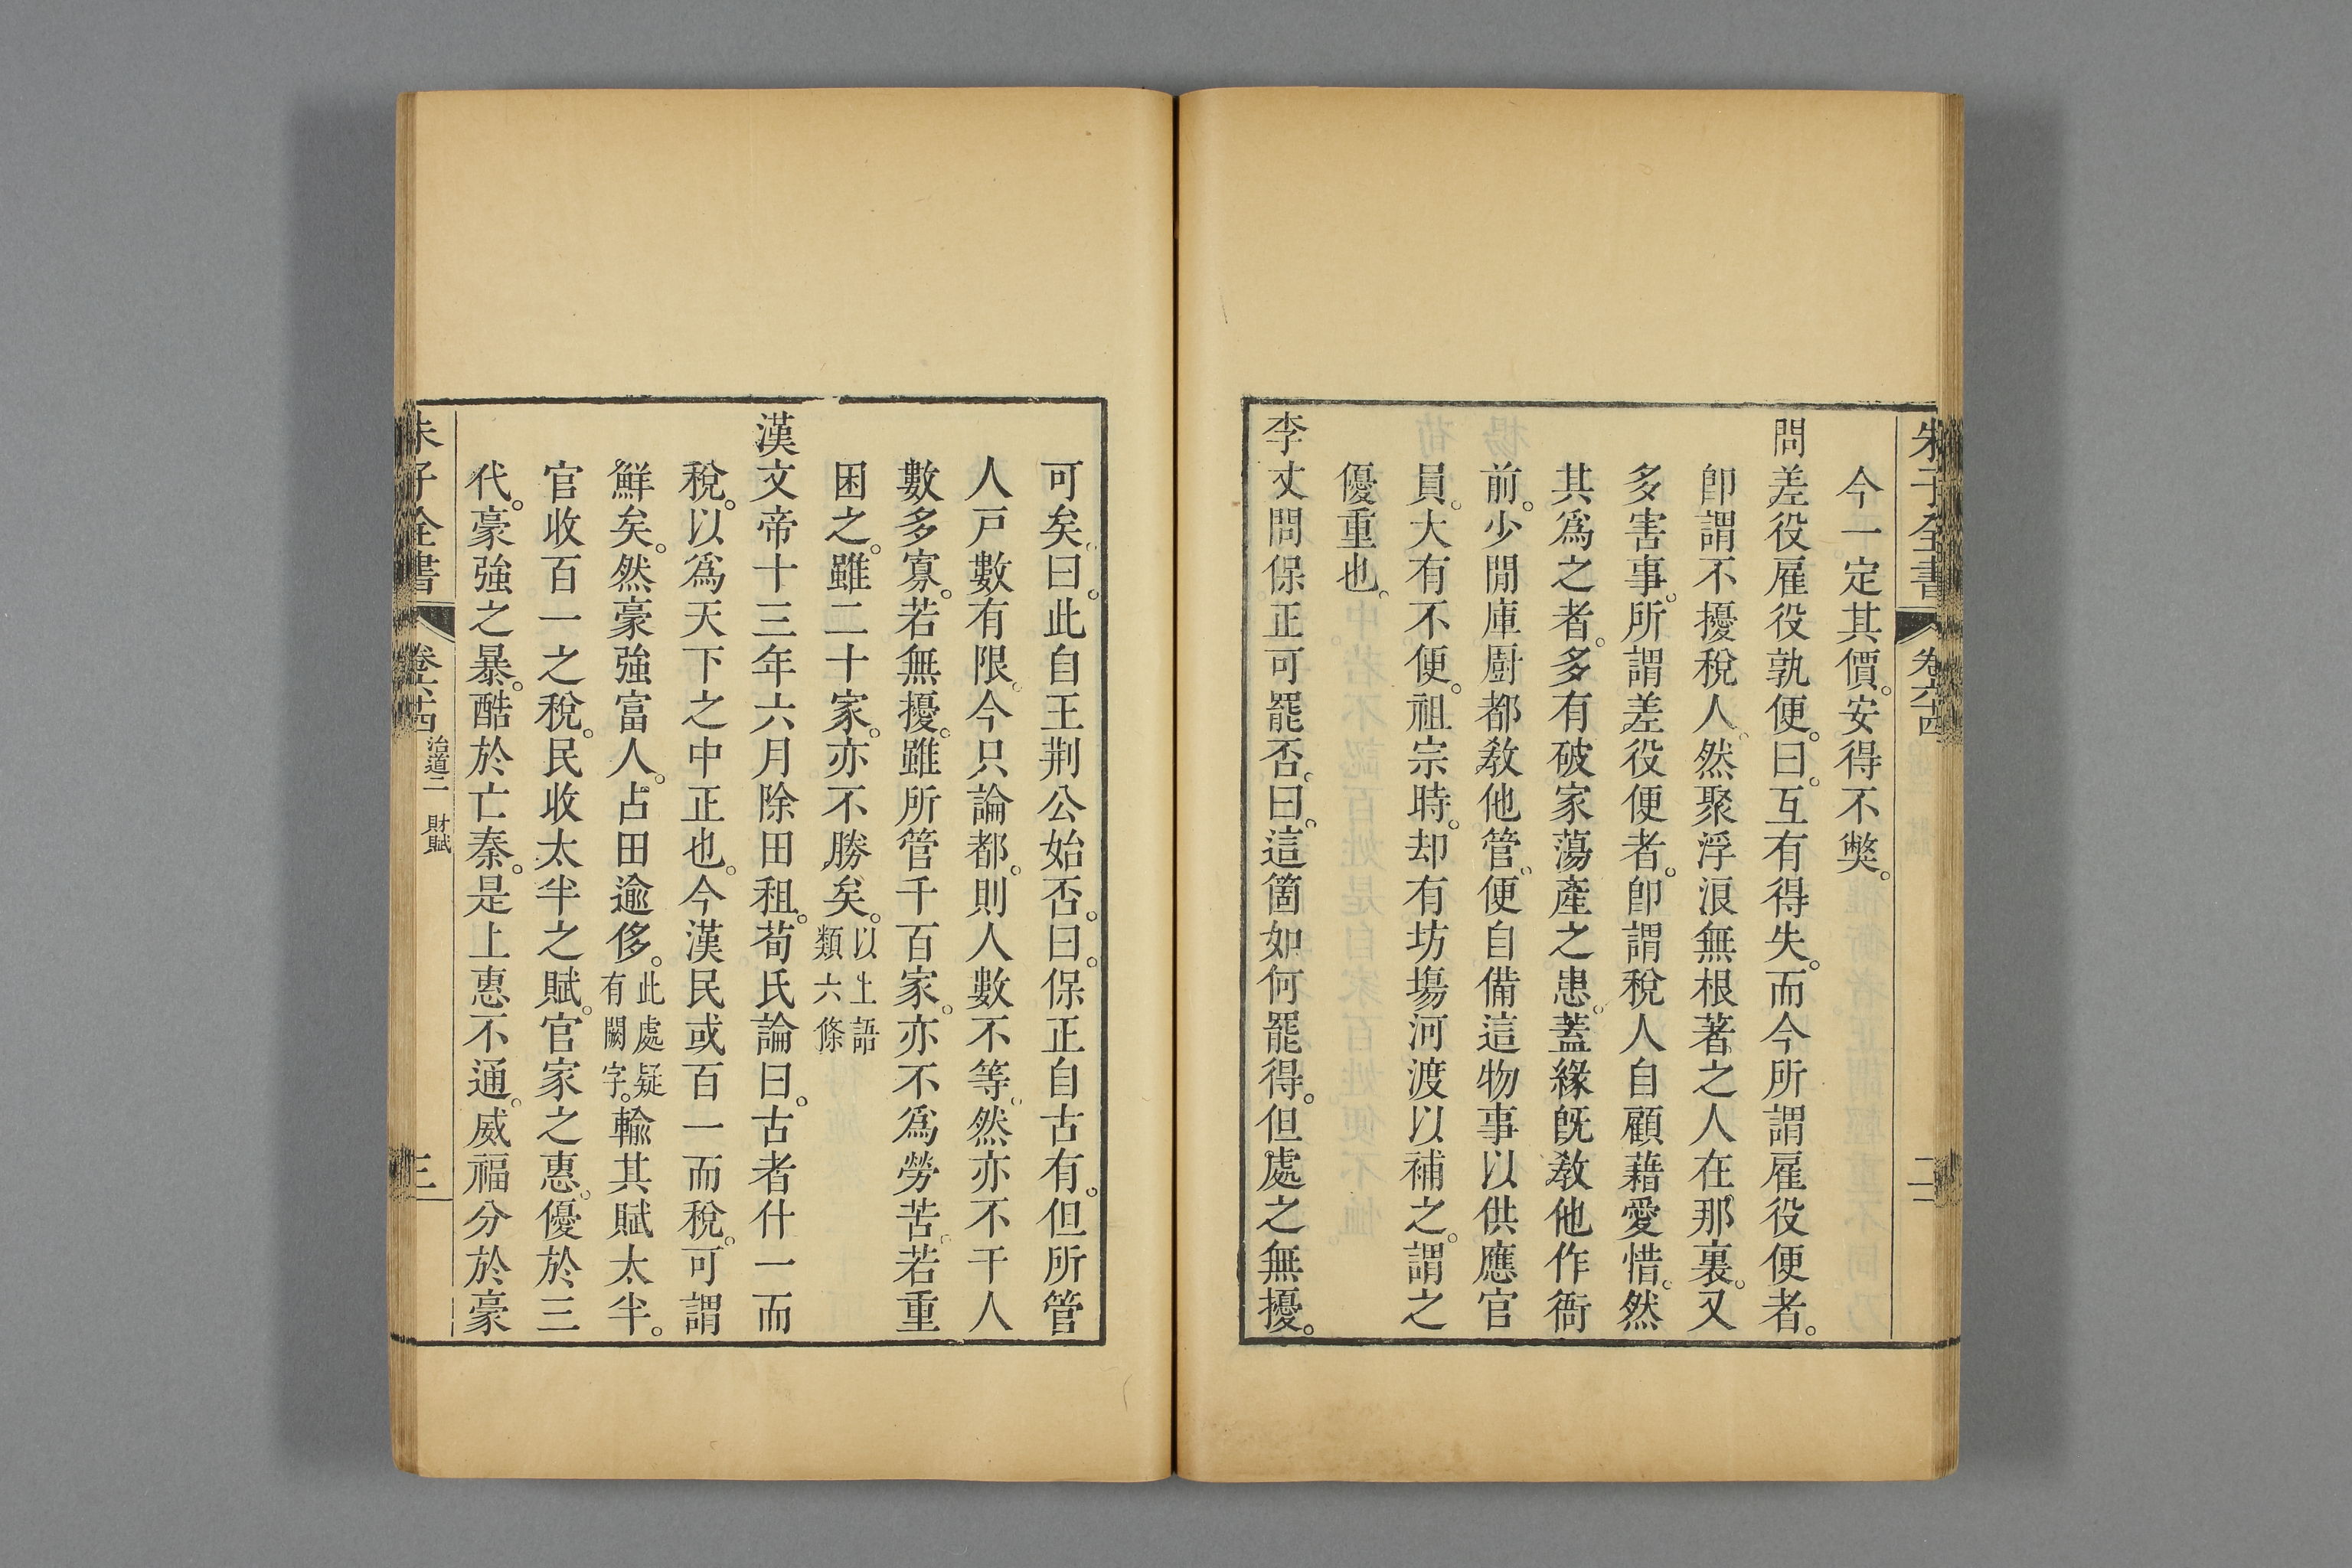 朱子全書 卷六十四 二
今一定其價。安得不獘。
問差役雇役孰便。曰。互有得失。而今所謂雇役便者。
卽謂不擾稅人。然聚浮浪無根著之人在那裏。又
多害事。所謂差役便者。卽謂稅人自顧藉愛惜。然
其爲之者。多有破家蕩產之患。蓋緣旣敎他作衙
前。少閒庫廚都敎他管。便自備這物事以供應官
員。大有不便。祖宗時。却有坊塲河渡以補之。謂之
優重也。
李丈問保正可罷否。曰。這箇如何罷得。但處之無擾。
可矣。曰。此自王荆公始否。曰。保正自古有。但所管
人戸數有限。今只論都。則人數不等。然亦不干人
數多寡。若無擾。雖所管千百家。亦不爲勞苦。若重
困之。雖二十家。亦不勝矣。以上語類六條
漢文帝十三年六月除田租。荀氏論曰。古者什一而
稅。以爲天下之中正也。今漢民或百一而稅。可謂
鮮矣。然豪強富人。占田逾侈。此處疑有闕字。輸其賦太半。
官收百一之稅。民收太半之賦。官家之惠。優於三
代。豪強之暴。酷於亡秦。是上惠不通。威福分於豪
朱子全書 卷六十四 治道二 財賦 三